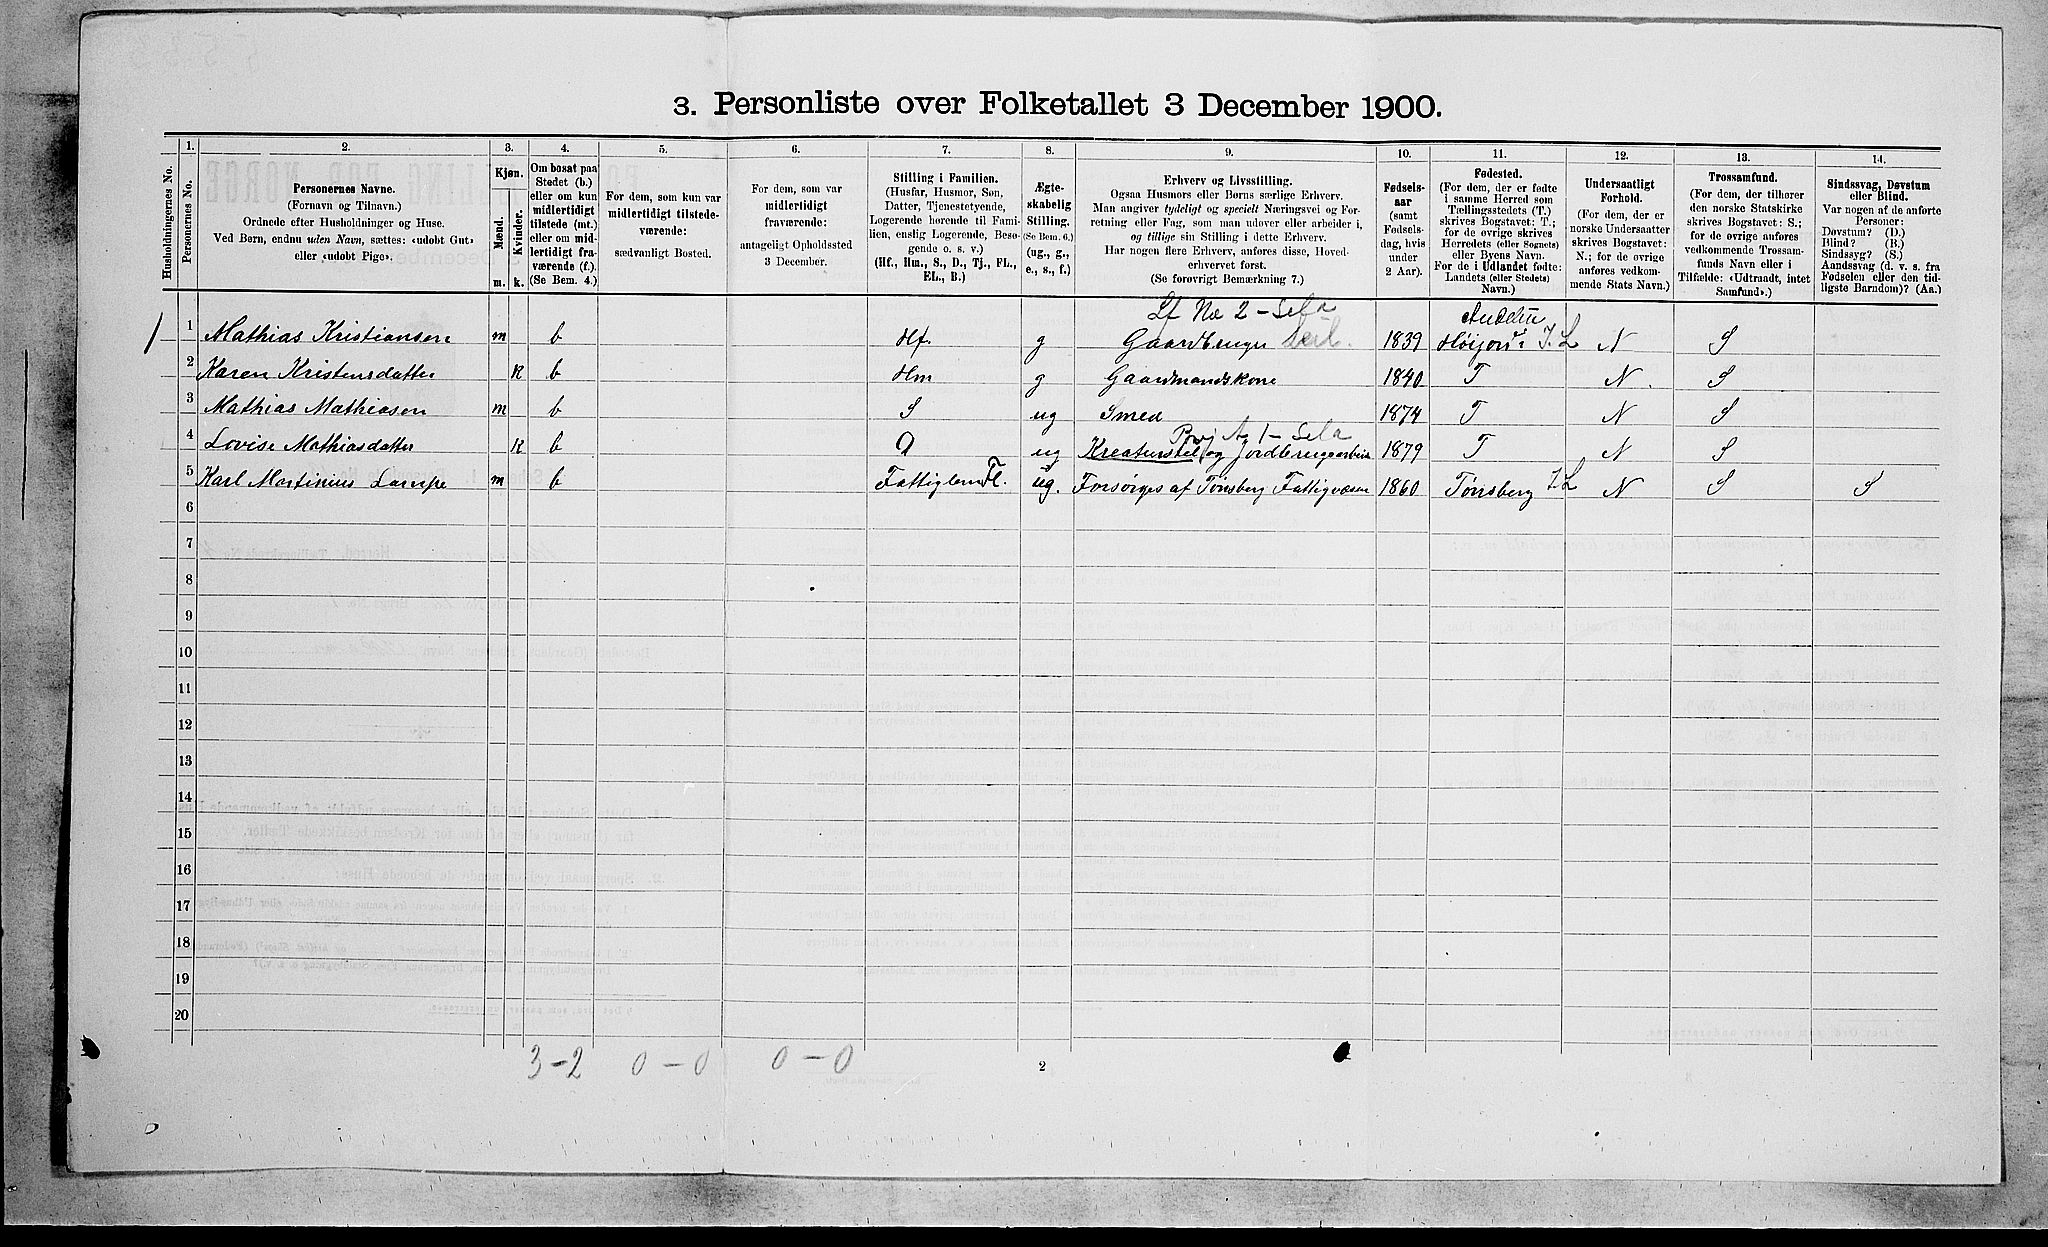 3. Personliste over Folketallet 3 December 1900.
Husholdningernes No.
1.
Personernes No.
2.
Personernes Navne.
(Fornavn og Tilnavn.)
Ordnede efter Husholdninger og Huse.
Ved Børn, endnu uden Navn, sættes: «udøbt Gut»
eller «udøbt Pige».
3.
Kjøn.
Mænd.
Kvinder.
m.
k.
4.
Om bosat paa
Stedet (b.)
eller om kun
midlertidigt
tilstede (mt.)
eller om mid-
lertidigt fra-
værende (f.).
(Se Bem. 4.)
5.
For dem, som kun var
midlertidigt tilstede-
værende:
sædvanligt Bosted.
6.
For dem, som var
midlertidigt
fraværende:
antageligt Opholdssted
3 December.
7.
Stilling i Familien.
(Husfar, Husmor, Søn,
Datter, Tjenestetyende,
Logerende hørende til Fami-
lien, enslig Logerende, Besø-
gende o. s. v.)
(Hf., Hm., S., D., Tj., FL.,
EL., B.)
8.
Ægte-
skabelig
Stilling.
(Se Bem. 6.)
(ug., g.,
e., s., f.)
9.
Erhverv og Livsstilling.
Ogsaa Husmors eller Børns særlige Erhverv.
Man angiver tydeligt og specielt Næringsvei og For-
retning eller Fag, som man udøver eller arbeider i,
og tillige sin Stilling i dette Erhverv.
Har nogen flere Erhverv, anføres disse, Hoved-
erhvervet først.
(Se forøvrigt Bemærkning 7.)
10.
Fødsels-
aar
(samt
Fødsels-
dag, hvis
under
2 Aar).
11.
Fødested.
(For dem, der er fødte
i samme Herred som
Tællingsstedets (T.)
skrives Bogstavet: T.;
for de øvrige skrives
Herredets (eller Sognets)
eller Byens Navn.
For de i Udlandet fødte:
Landets (eller Stedets)
Navn.)
12.
Undersaatligt
Forhold.
(For dem, der er
norske Undersaatter
skrives Bogstavet:
N.; for de øvrige
anføres vedkom-
mende Stats Navn.)
13.
Trossamfund.
(For dem, der tilhører
den norske Statskirke
skrives Bogstavet: S.;
for de øvrige anføres
vedkommende Trossam-
funds Navn eller i
Tilfælde: «Udtraadt, intet
Samfund».)
14.
Sindssvag, Døvstum
eller Blind.
Var nogen af de anførte
Personer:
Døvstum? (D.)
Blind? (B.)
Sindssyg? (S.)
Aandssvag (d. v. s. fra
Fødselen eller den tid-
ligste Barndom)? (Aa.)
Lf No 2 - Sela
1 Mathias Kristiansen m b Hf. g Gaardbruger 1839 Høijord N S
2 Karen Kristensdatter k b Hm g Gaardmandskone 1840 T N. S
3 Mathias Mathiasen m b S ug Smed 1874 T N S
4 Lovise Mathiasdatter k b D ug Kreaturstel og Jordbrugsarbeide 1879 T N S
5 Karl Martinius Lampe m b Fattiglem Fl. ug. Forsørges af Tønsberg Fattigvæsen 1860 Tønsberg N S S
6
7
8
9
10
11
12
13
14
15
16
17
18
19
20
3 - 2 0 - 0 0 - 0
2